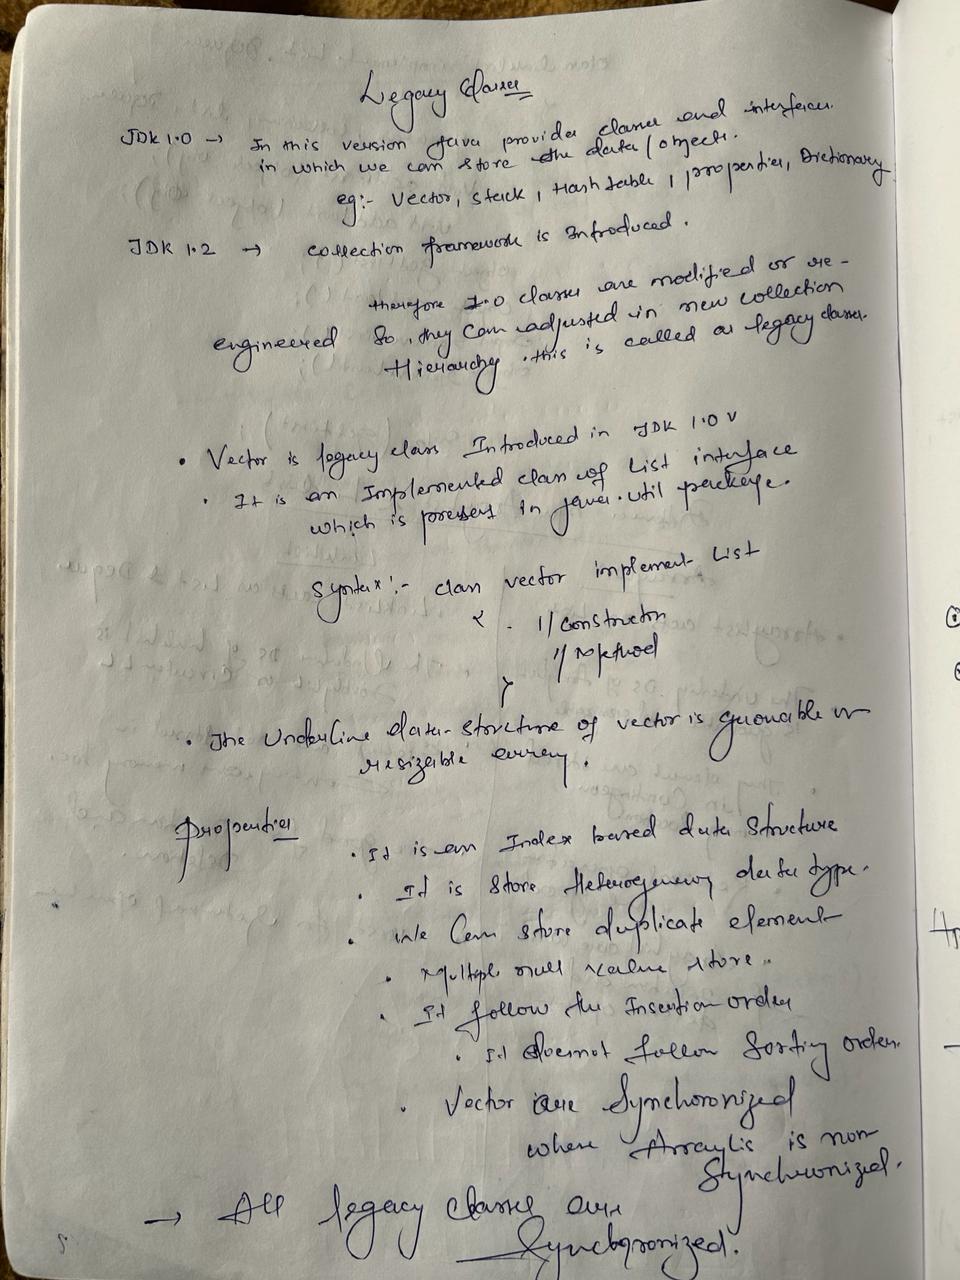 Legacy Classes
JDK 1.0 → In this version Java provides classes and interfaces.
in which we can store the data/objects.
eg:- Vector, Stack, Hash table, properties, Dictionary
JDK 1.2 → collection framework is Introduced.
therefore 1.0 classes are modified or re-
engineered So, they can adjusted in new collection
Hierarchy. this is called as legacy classes.
• Vector is legacy class Introduced in JDK 1.0 v
• It is an Implemented class of List interface
which is present in java.util package.
Syntax:- class vector implement List
{ . // constructor
// Method
}
• The Underline data-structure of vector is growable or
resizable array.
Properties
• It is an Index based data structure
• It is store Heterogeneous data type.
• We Can store duplicate element
• Multiple null value store.
• It follow the Insertion order
• It doesnot follow Sorting order.
• Vector are Synchoronized
where Arraylis is non
Synchronized.
→ All legacy classes are
Synchronized.